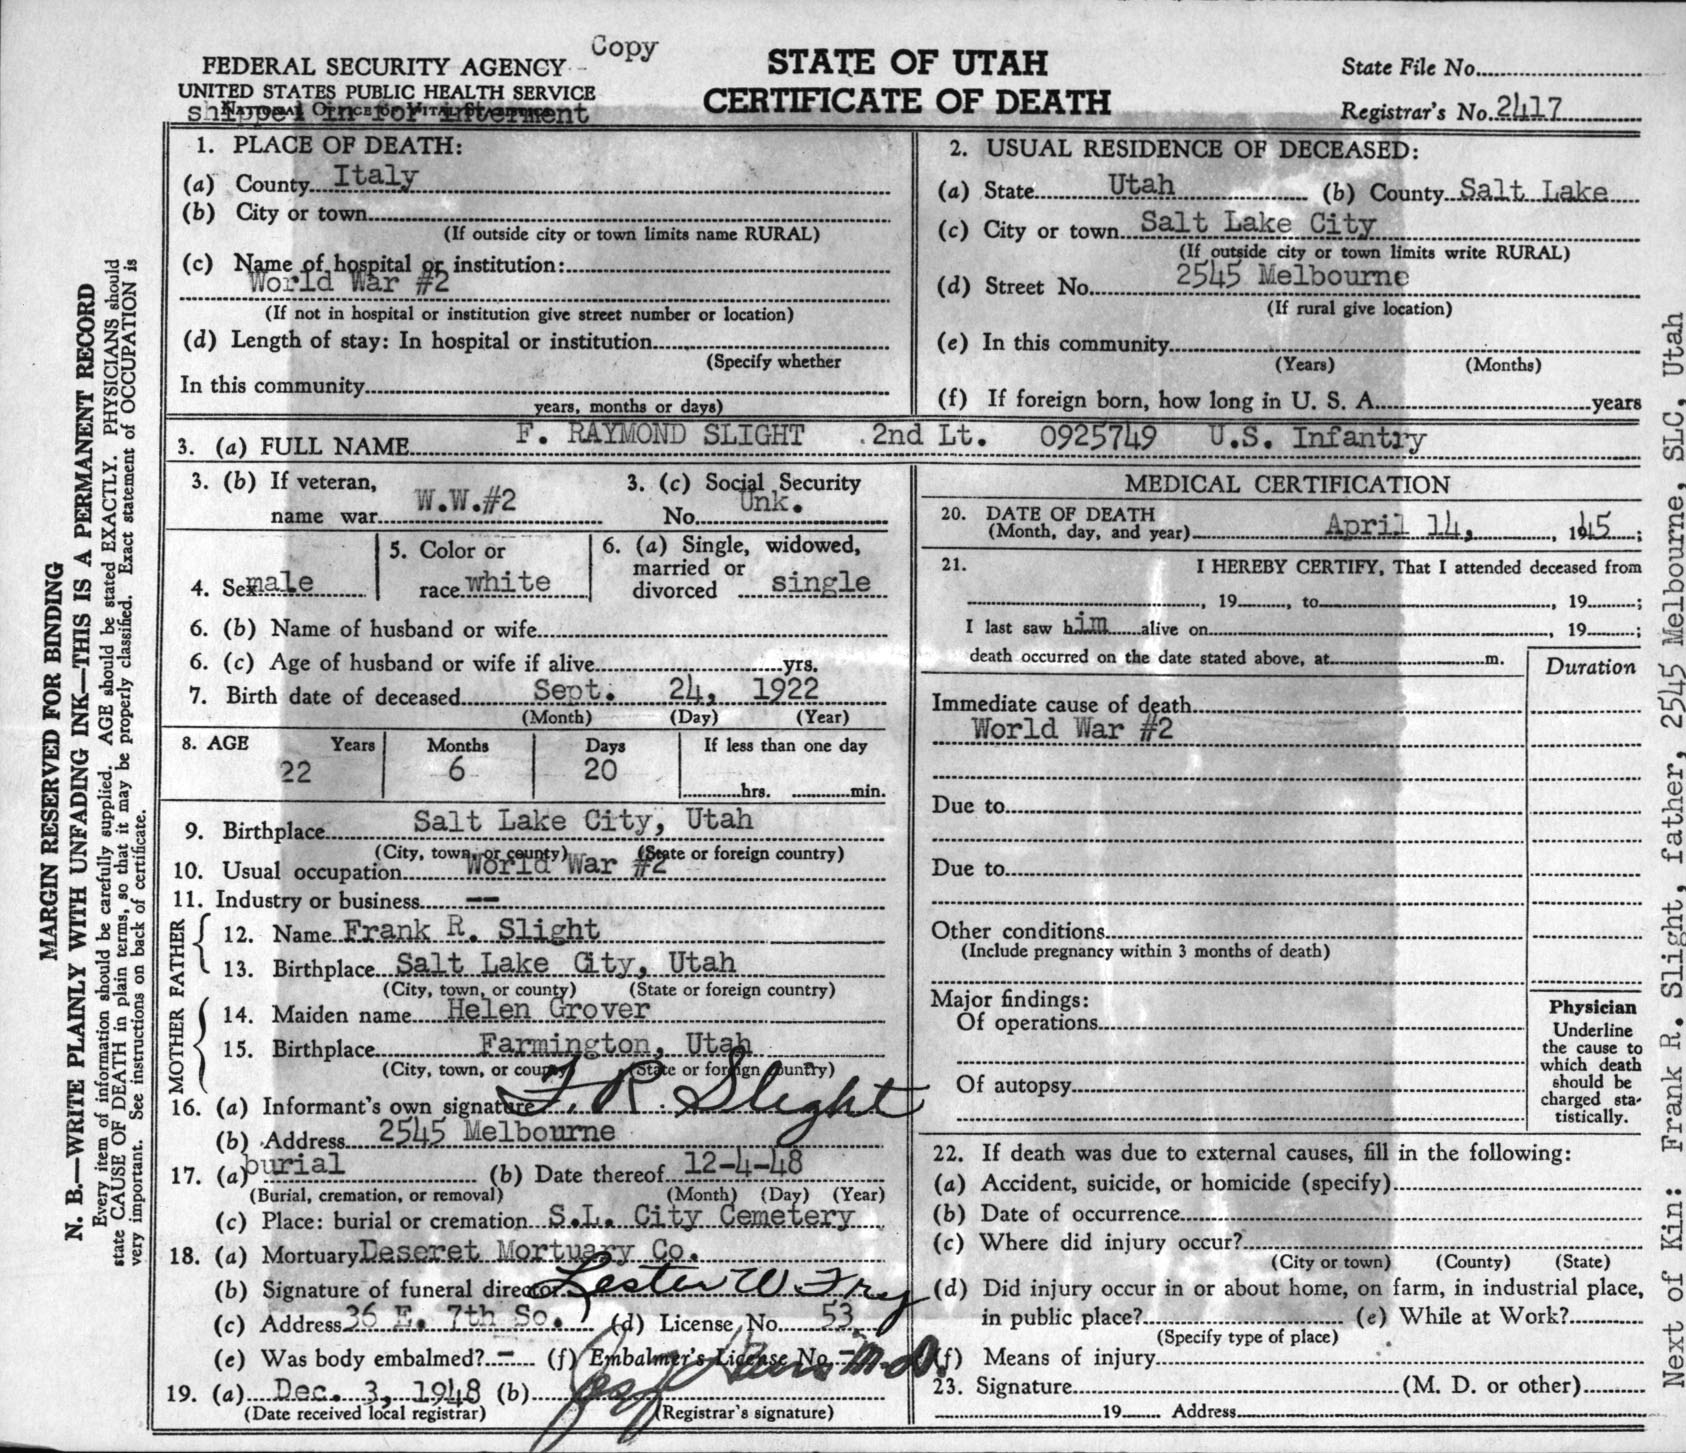 Copy
FEDERAL SECURITY AGENCY
UNITED STATES PUBLIC HEALTH SERVICE
shipped in for interment
STATE OF UTAH
CERTIFICATE OF DEATH
State File No.
Registrar's No. 2417
1. PLACE OF DEATH:
(a) County Italy
(b) City or town
(If outside city or town limits name RURAL)
(c) Name of hospital or institution:
World War #2
(If not in hospital or institution give street number or location)
(d) Length of stay: In hospital or institution
(Specify whether
In this community
years, months or days)
2. USUAL RESIDENCE OF DECEASED:
(a) State Utah (b) County Salt Lake
(c) City or town Salt Lake City
(If outside city or town limits write RURAL)
(d) Street No. 2545 Melbourne
(If rural give location)
(e) In this community
(Years) (Months)
(f) If foreign born, how long in U. S. A. years
3. (a) FULL NAME F. RAYMOND SLIGHT 2nd Lt. 0925749 U.S. Infantry
3. (b) If veteran,
name war W.W.#2
3. (c) Social Security
No. Unk.
4. Sex male
5. Color or
race white
6. (a) Single, widowed,
married or
divorced single
6. (b) Name of husband or wife
6. (c) Age of husband or wife if alive yrs.
7. Birth date of deceased Sept. 24, 1922
(Month) (Day) (Year)
8. AGE Years Months Days If less than one day
22 6 20 hrs. min.
9. Birthplace Salt Lake City, Utah
(City, town, or county) (State or foreign country)
10. Usual occupation World War #2
11. Industry or business --
FATHER
12. Name Frank R. Slight
13. Birthplace Salt Lake City, Utah
(City, town, or county) (State or foreign country)
MOTHER
14. Maiden name Helen Grover
15. Birthplace Farmington, Utah
(City, town, or county) (State or foreign country)
16. (a) Informant's own signature F. R. Slight
(b) Address 2545 Melbourne
17. (a) burial (b) Date thereof 12-4-48
(Burial, cremation, or removal) (Month) (Day) (Year)
(c) Place: burial or cremation S.L. City Cemetery
18. (a) Mortuary Deseret Mortuary Co.
(b) Signature of funeral director Lester W Fry
(c) Address 36 E. 7th So. (d) License No. 53
(e) Was body embalmed? - (f) Embalmer's License No. -
19. (a) Dec. 3, 1948 (b) M.D.
(Date received local registrar) (Registrar's signature)
MEDICAL CERTIFICATION
20. DATE OF DEATH
(Month, day, and year) April 14, 1945;
21. I HEREBY CERTIFY, That I attended deceased from
, 19 , to , 19 ;
I last saw him alive on , 19 ;
death occurred on the date stated above, at m.
Duration
Immediate cause of death
World War #2
Due to
Due to
Other conditions
(Include pregnancy within 3 months of death)
Major findings:
Of operations
Of autopsy
Physician
Underline
the cause to
which death
should be
charged sta-
tistically.
22. If death was due to external causes, fill in the following:
(a) Accident, suicide, or homicide (specify)
(b) Date of occurrence
(c) Where did injury occur?
(City or town) (County) (State)
(d) Did injury occur in or about home, on farm, in industrial place,
in public place? (e) While at Work?
(Specify type of place)
(f) Means of injury
23. Signature (M. D. or other)
19 Address
MARGIN RESERVED FOR BINDING
N. B.—WRITE PLAINLY WITH UNFADING INK—THIS IS A PERMANENT RECORD
Every item of information should be carefully supplied. AGE should be stated EXACTLY. PHYSICIANS should
state CAUSE OF DEATH in plain terms, so that it may be properly classified. Exact statement of OCCUPATION is
very important. See instructions on back of certificate.
Next of Kin: Frank R. Slight, father, 2545 Melbourne, SLC, Utah